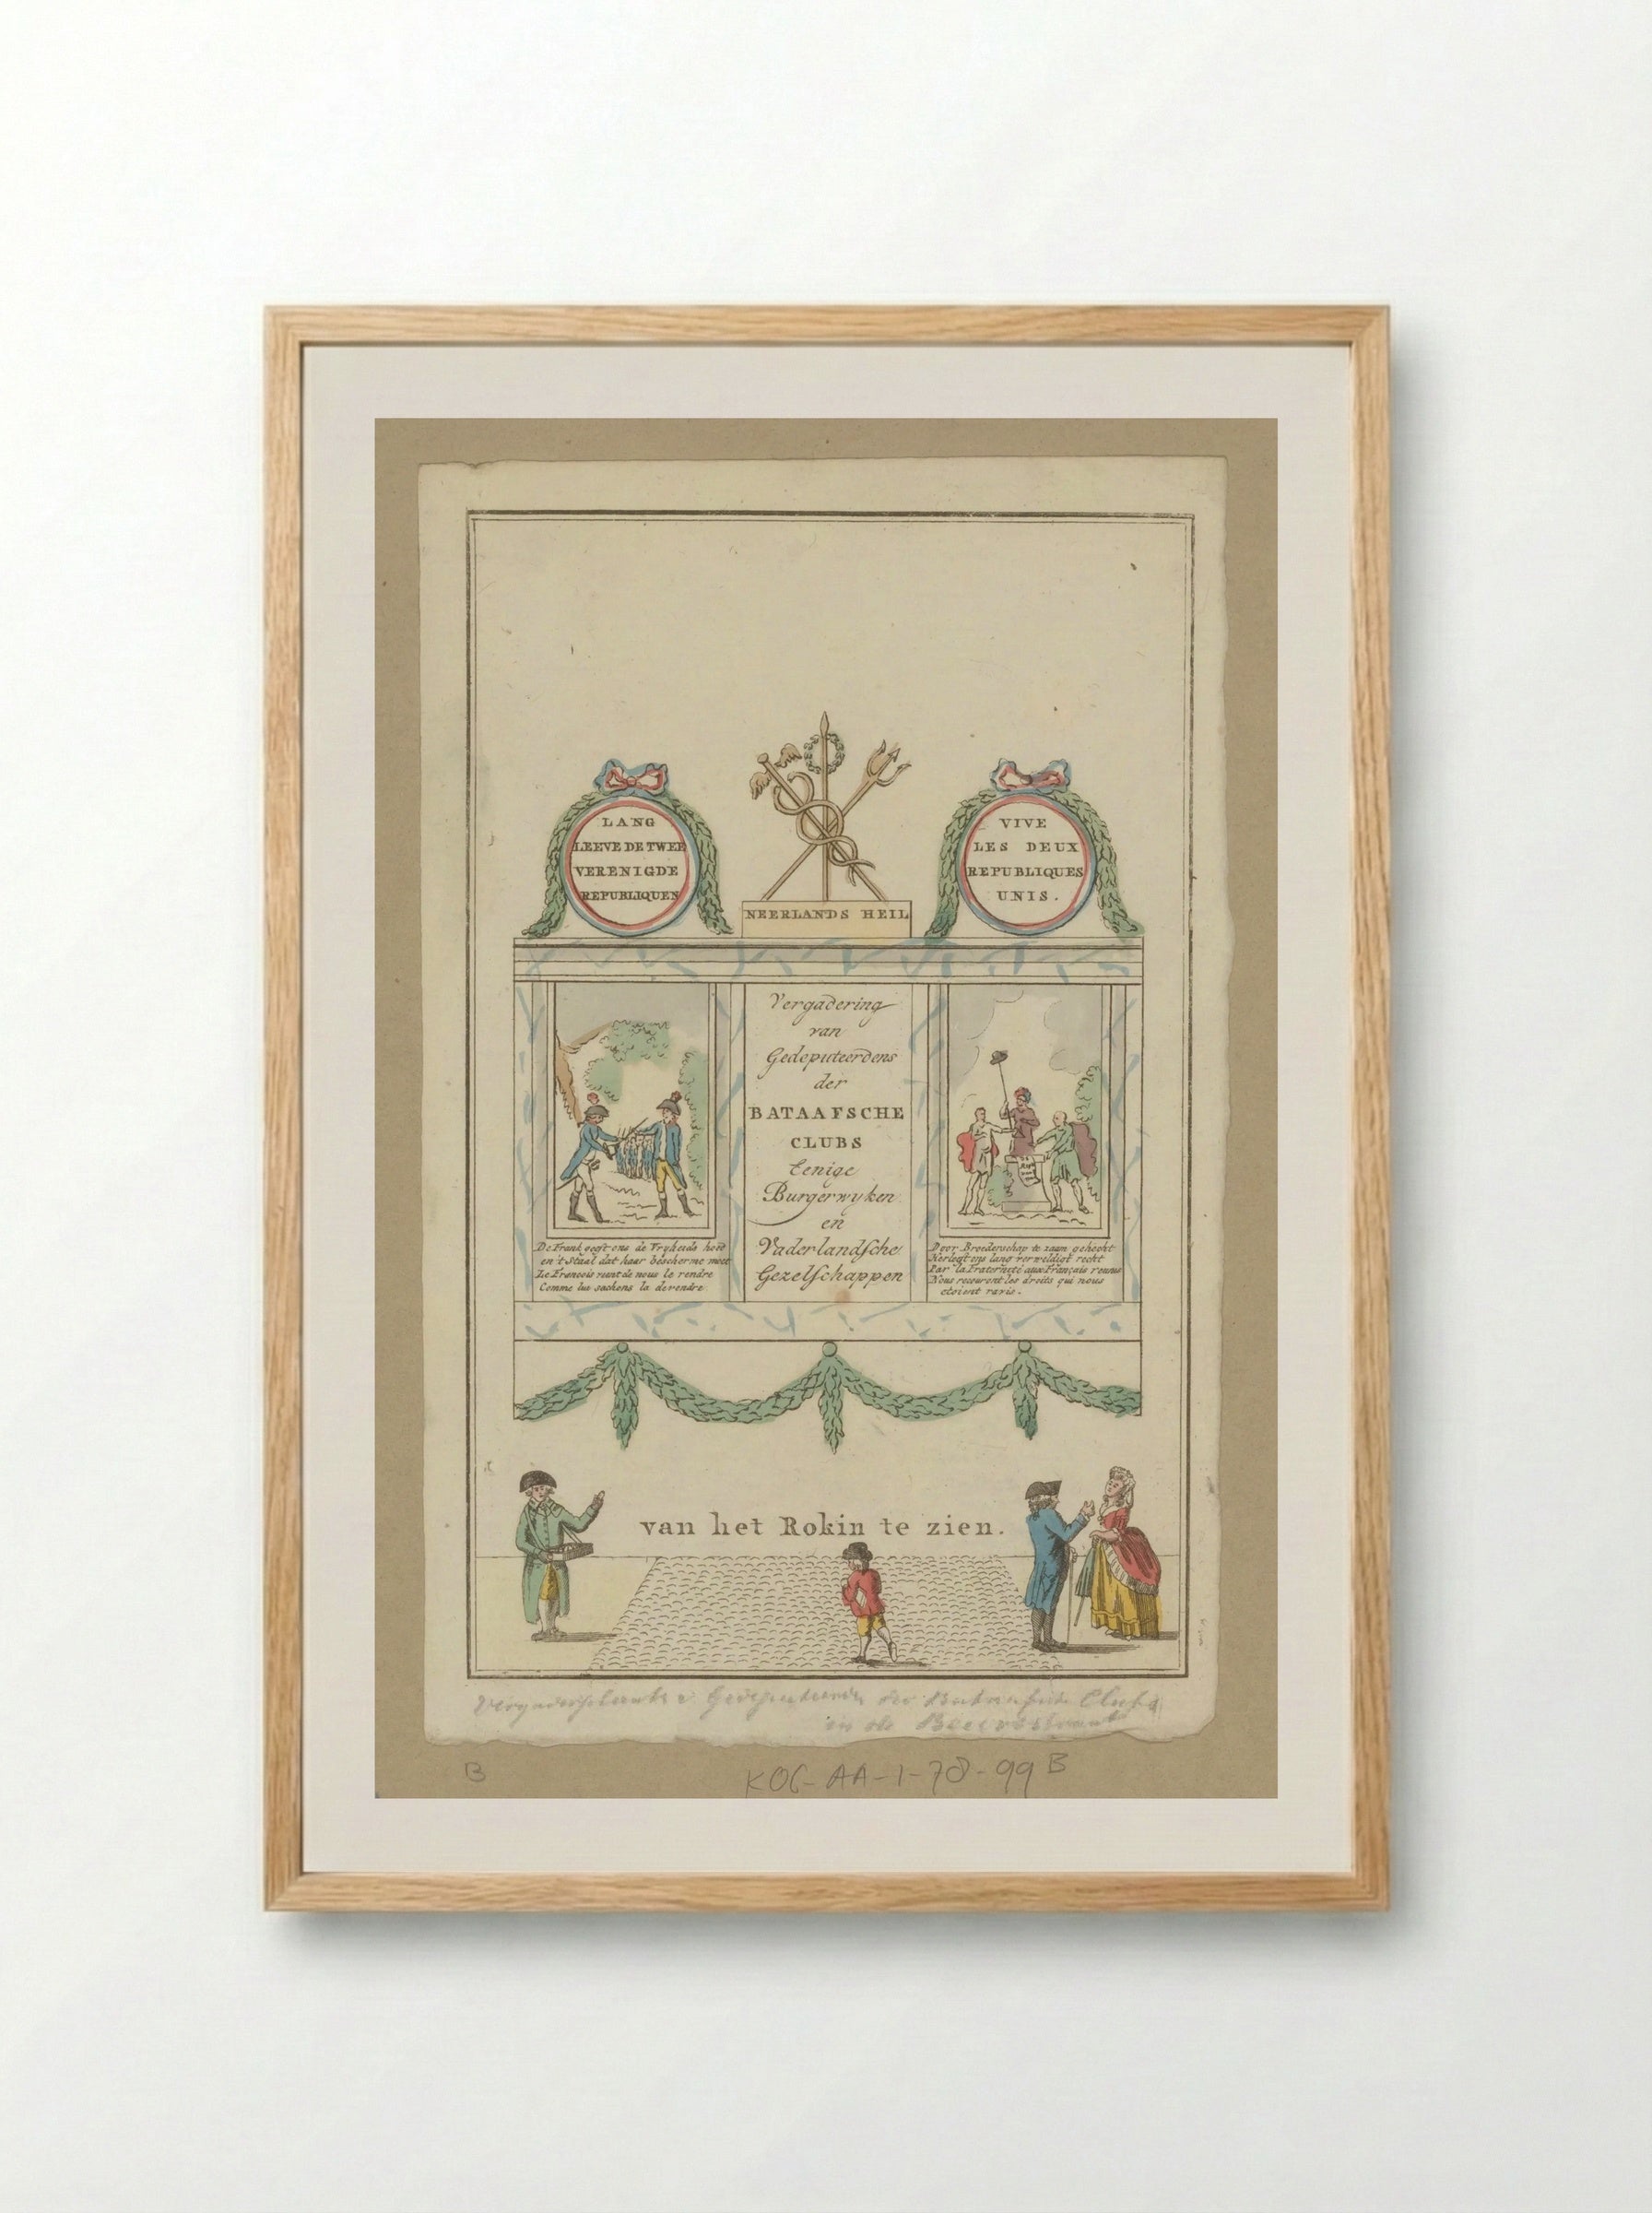 LANG
LEEVE DE TWEE
VERENIGDE
REPUBLIQUEN
NEERLANDS HEIL
VIVE
LES DEUX
REPUBLIQUES
UNIS.
Vergadering
van
Gedeputeerdens
der
BATAAFSCHE
CLUBS
Eenige
Burgerwyken
en
Vaderlandsche
Gezelschappen
De Frank geeft ons de Vryheids hoed
en 't Staal dat haar bescherme moet
Le Francois vient de nous le rendre
Comme lui sachons la defendre
Door Broederschap te zaam gehecht
Herleeft ons lang verweldigt recht
Par la Fraterneté aux Français reunis
Nous recouvrent les droits qui nous
etoient ravis.
van het Rokin te zien.
Gedeputeerden der Bataafsche Clubs
in de
B
KOG-AA-1-78-99 B